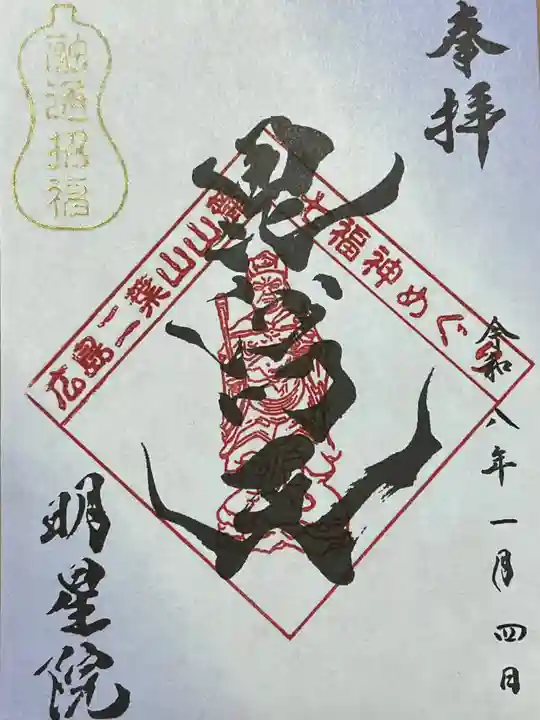 奉拝
融通招福
毘沙門天
広島二葉山山麓
七福神めぐり
令和八年一月四日
明星院